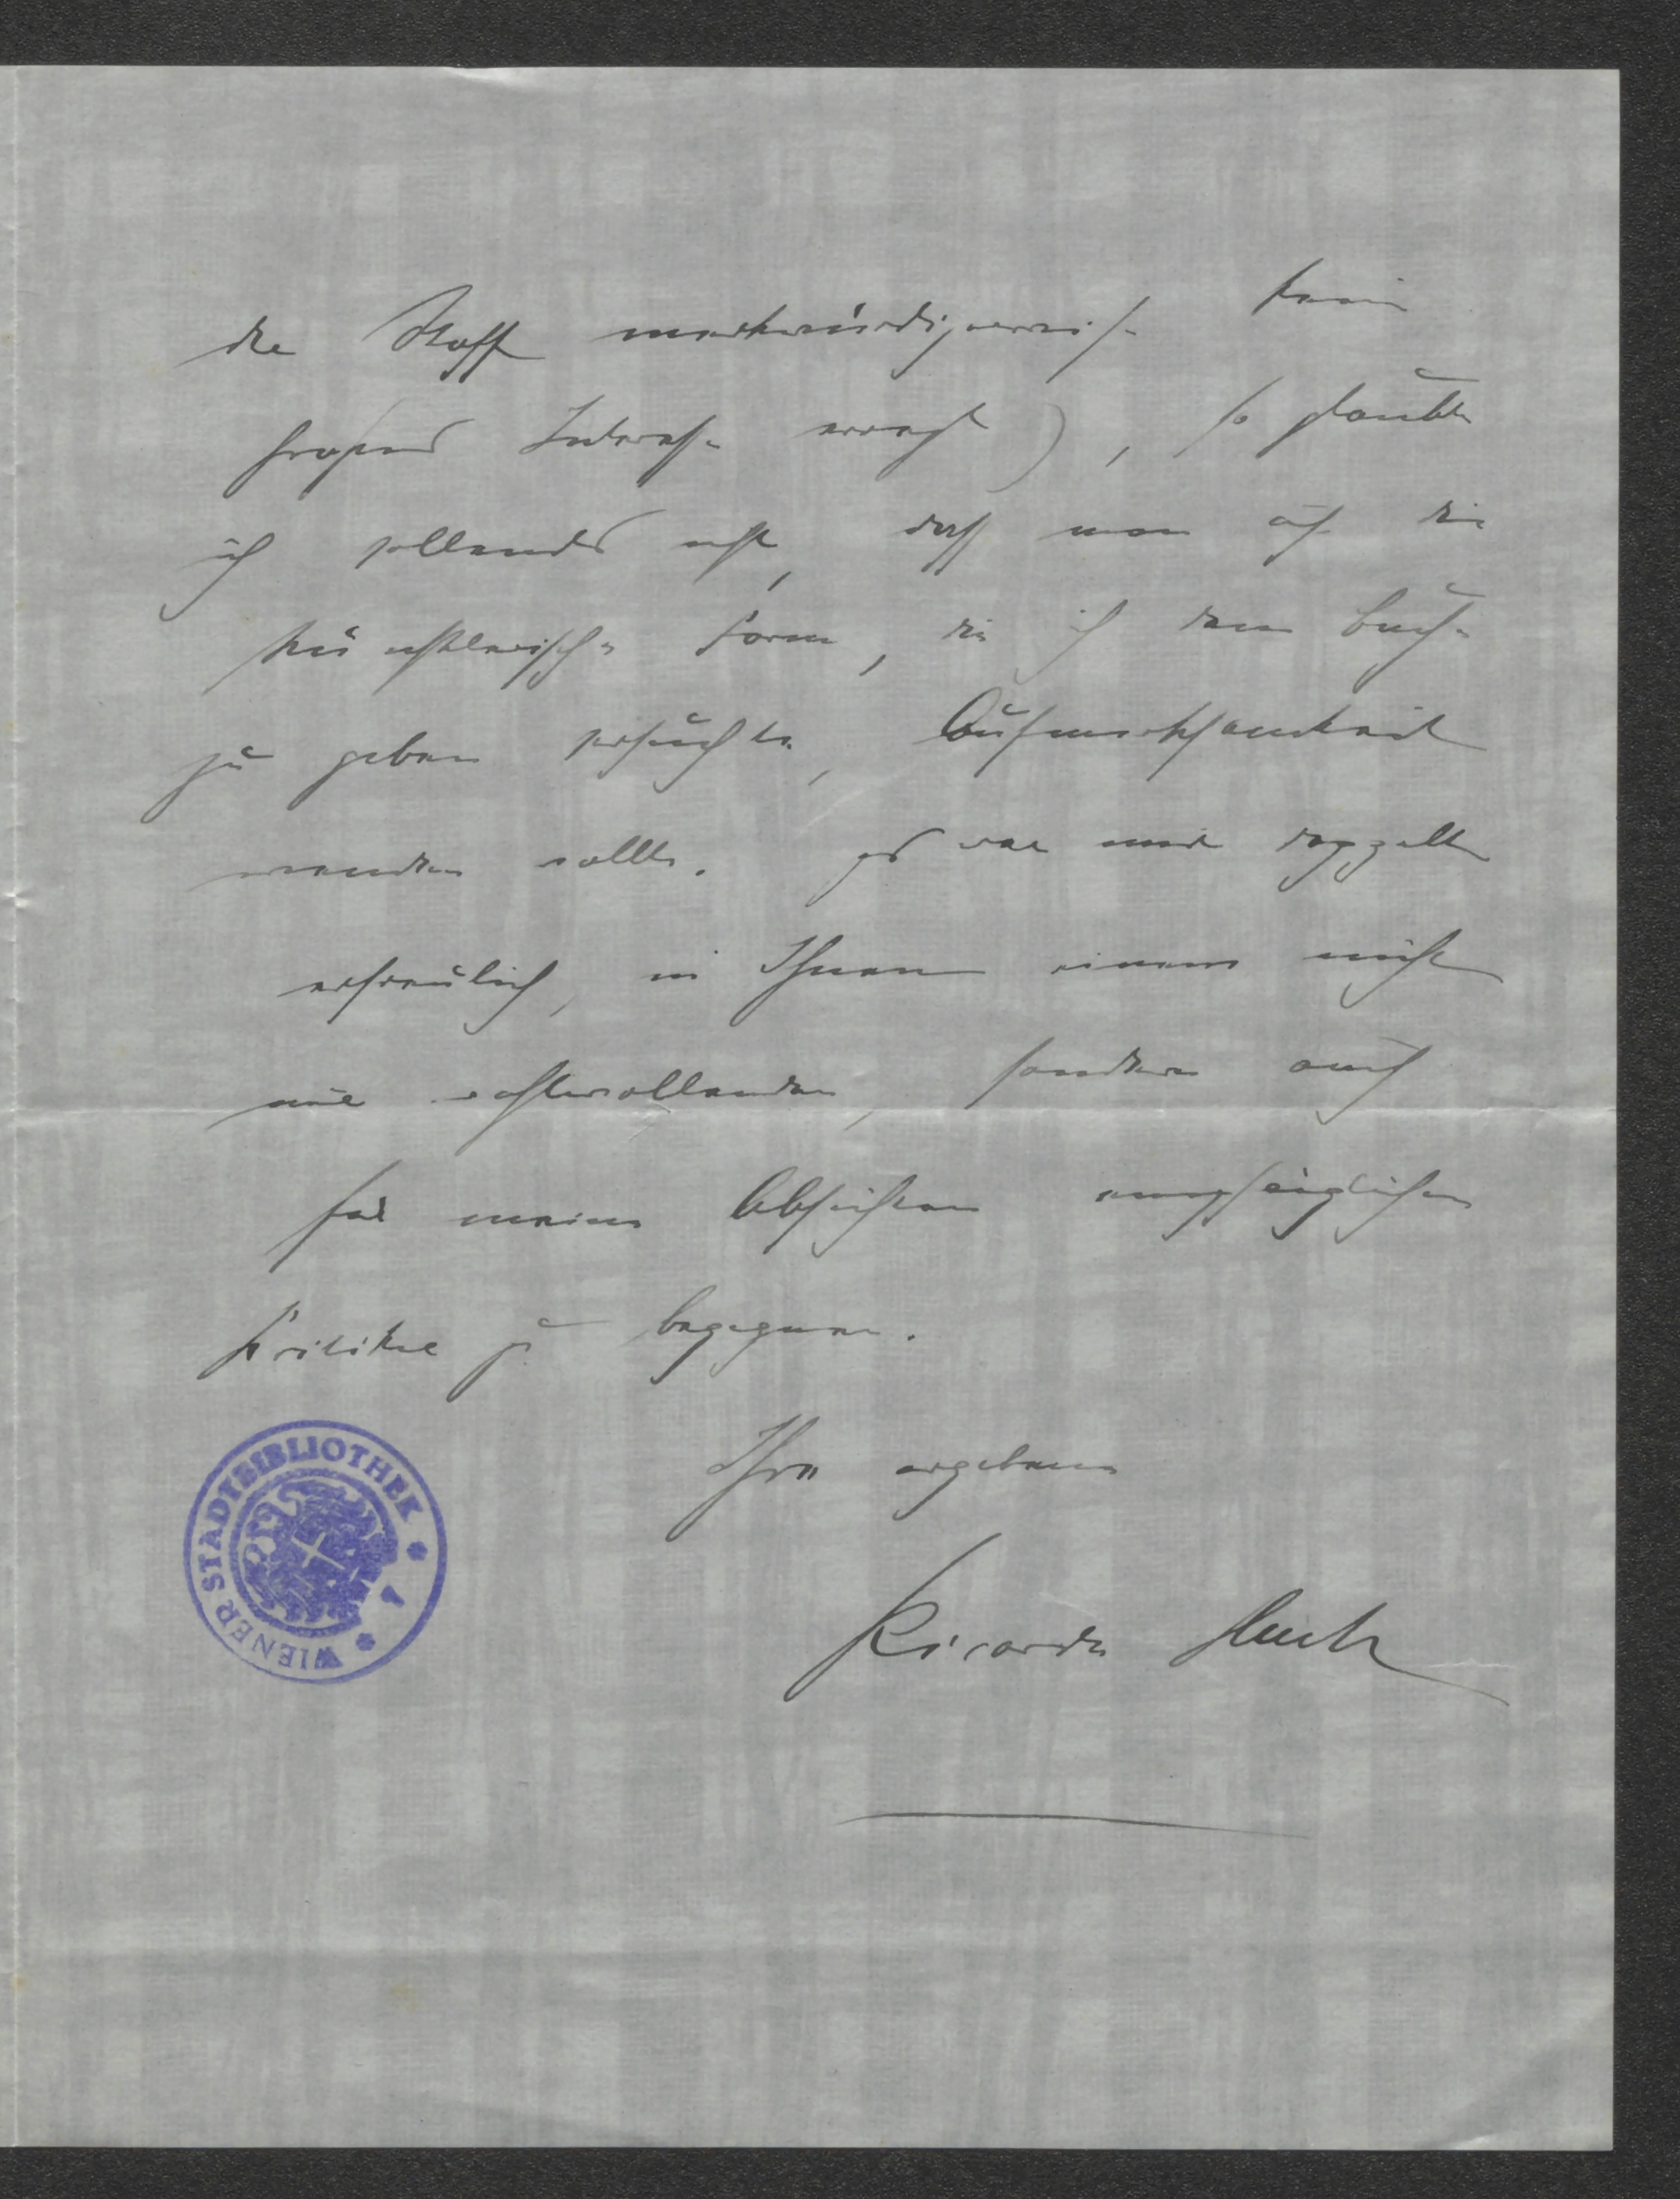 der Stoff merkwürdigerweise kein
großes Interesse erregt), so glaubte
ich vollends nicht, dass man auf die
künstlerische Form, die ich dem Buche
zu geben versuchte, Aufmerksamkeit
wenden wollte. Es war mir doppelt
erfreulich, in Ihnen einem nicht
nur wohlwollenden, sondern auch
für meine Absichten empfänglichen
Kritiker zu begegnen.
Ihre ergebene
Ricarda Huch
WIENER STADTBIBLIOTHEK